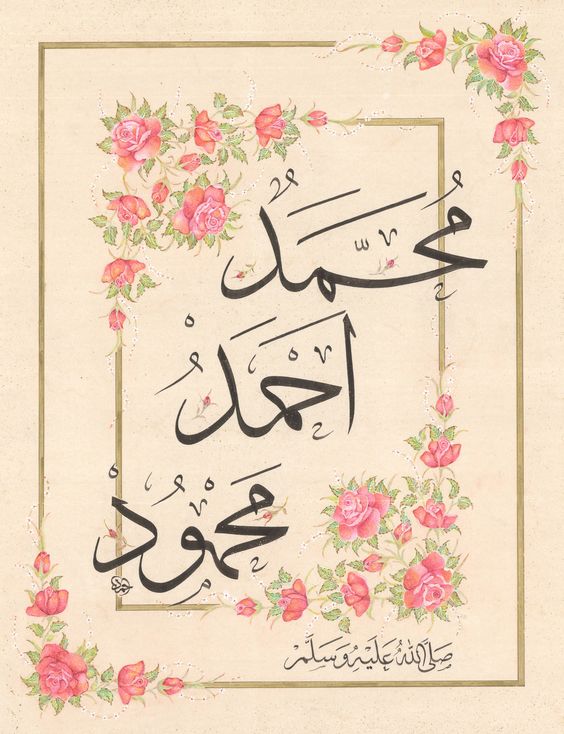 مُحَمَّدُ
اَحْمَدُ
مَحْمُودُ
صَلَّى اللهُ عَلَيْهِ وَسَلَّمَ